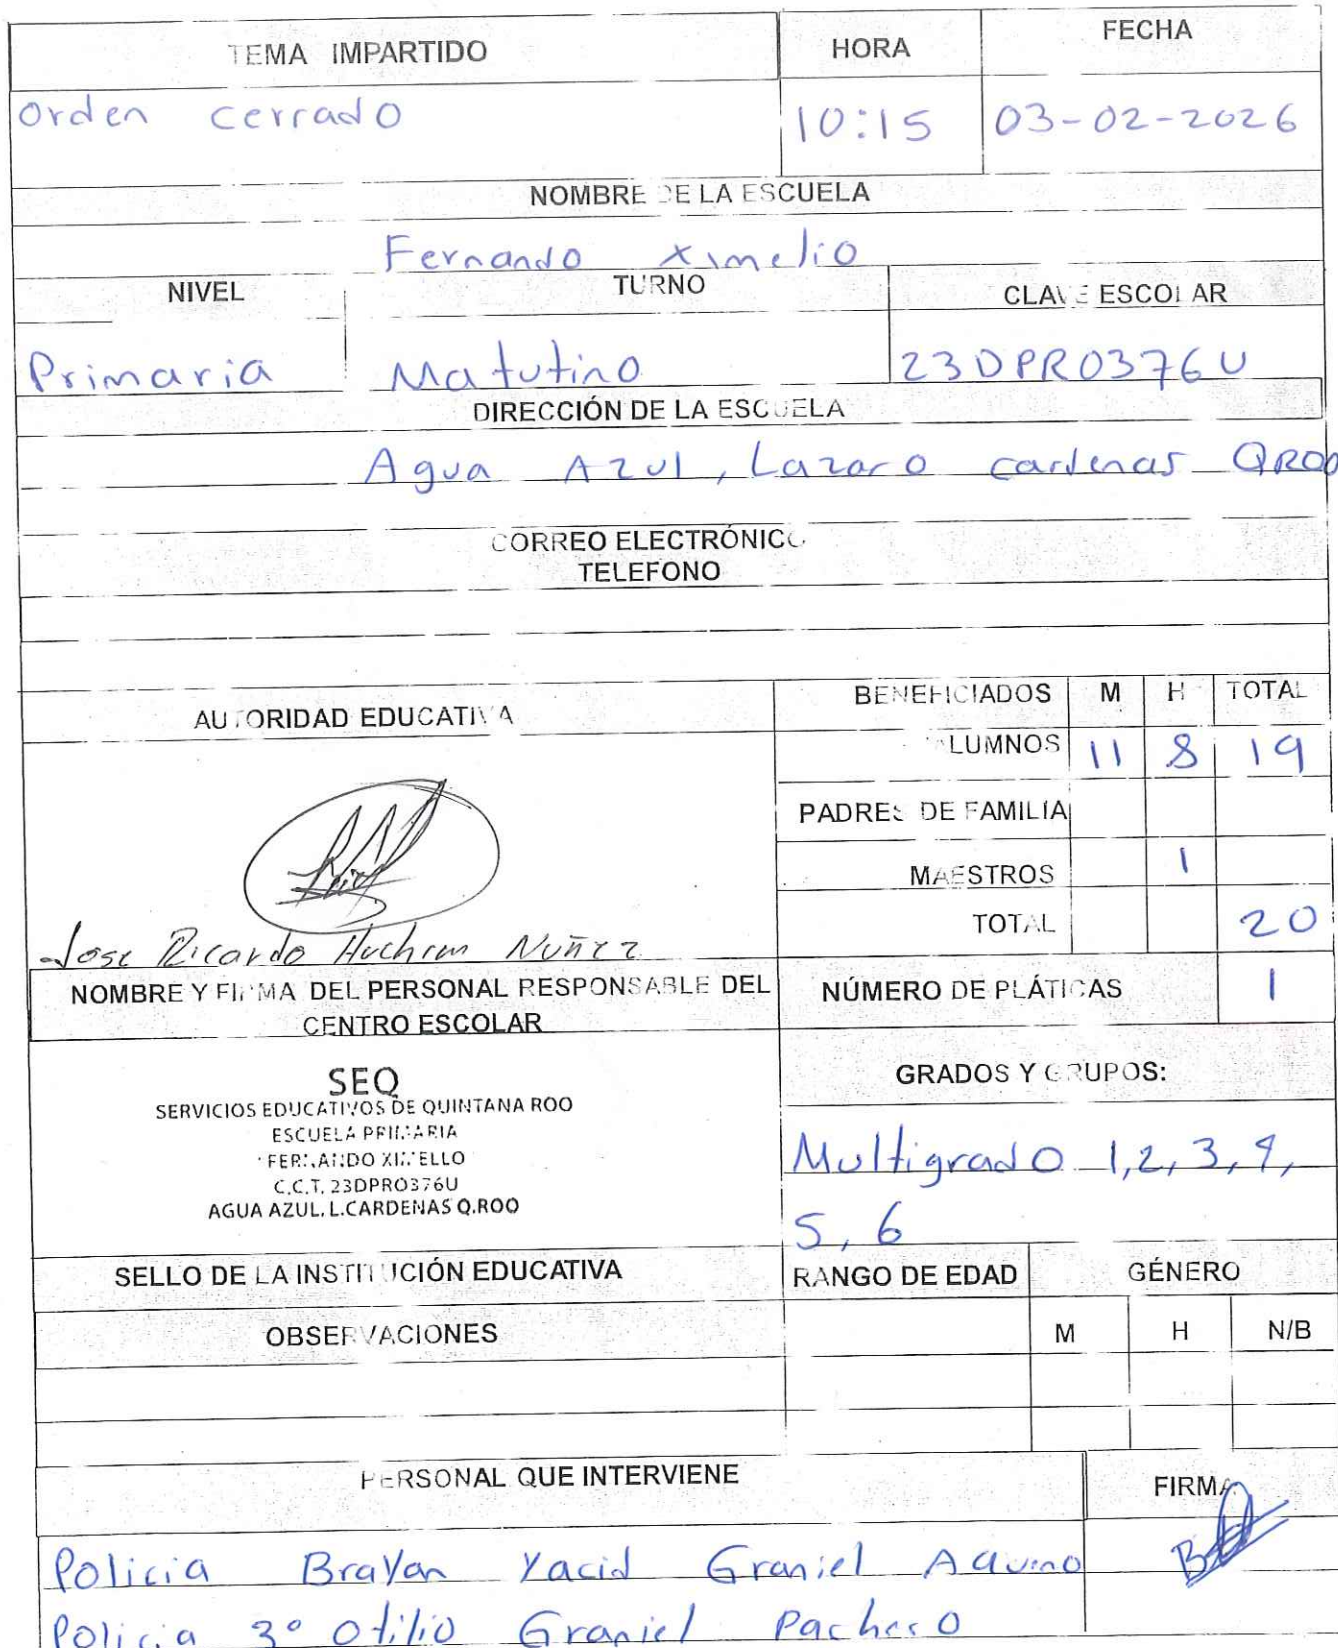 TEMA IMPARTIDO HORA FECHA
Orden cerrado 10:15 03-02-2026
NOMBRE DE LA ESCUELA
Fernando Ximelio
NIVEL TURNO CLAVE ESCOLAR
Primaria Matutino 23DPR0376U
DIRECCIÓN DE LA ESCUELA
Agua Azul, Lazaro cardenas QROO
CORREO ELECTRÓNICO
TELEFONO
AUTORIDAD EDUCATIVA BENEFICIADOS M H TOTAL
ALUMNOS 11 8 19
PADRES DE FAMILIA
MAESTROS 1
TOTAL 20
Jose Ricardo Huchim Nuñez
NOMBRE Y FIRMA DEL PERSONAL RESPONSABLE DEL CENTRO ESCOLAR NÚMERO DE PLÁTICAS 1
SEQ
SERVICIOS EDUCATIVOS DE QUINTANA ROO
ESCUELA PRIMARIA
FERNANDO XIMELLO
C.C.T. 23DPRO376U
AGUA AZUL, L.CARDENAS Q.ROO
GRADOS Y GRUPOS:
Multigrado 1,2,3,4,
5,6
SELLO DE LA INSTITUCIÓN EDUCATIVA RANGO DE EDAD GÉNERO
OBSERVACIONES M H N/B
PERSONAL QUE INTERVIENE FIRMA
Policia Brayan Yacid Graniel Aquino
Policia 3° Otilio Graniel Pacheco